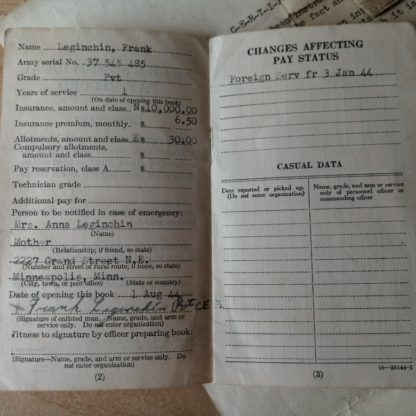 Name Leginchin, Frank
Army serial No. 37 545 485
Grade Pvt
Years of service 1
(On date of opening this book)
Insurance, amount and class N$10,000.00
Insurance premium, monthly $ 6.50
Allotments, amount and class E$ 30.00
Compulsory allotments,
amount and class $
Pay reservation, class A $
Technician grade
Additional pay for
Person to be notified in case of emergency:
Mrs. Anna Leginchin
(Name)
Mother
(Relationship; if friend, so state)
2227 Grand Street N.E.
(Number and street or rural route; if none, so state)
Minneapolis, Minn.
(City, town, or post office) (State or country)
Date of opening this book 1 Aug 44
Frank Leginchin
(Signature of enlisted man. Name, grade, and arm or
service only. Do not enter organization)
Witness to signature by officer preparing book:
(Signature—Name, grade, and arm or service only. Do
not enter organization)
(2)
CHANGES AFFECTING
PAY STATUS
Foreign Serv fr 3 Jan 44
CASUAL DATA
Date reported or picked up.
(Do not enter organization)
Name, grade, and arm or service
only of personnel officer or
commanding officer
(3)